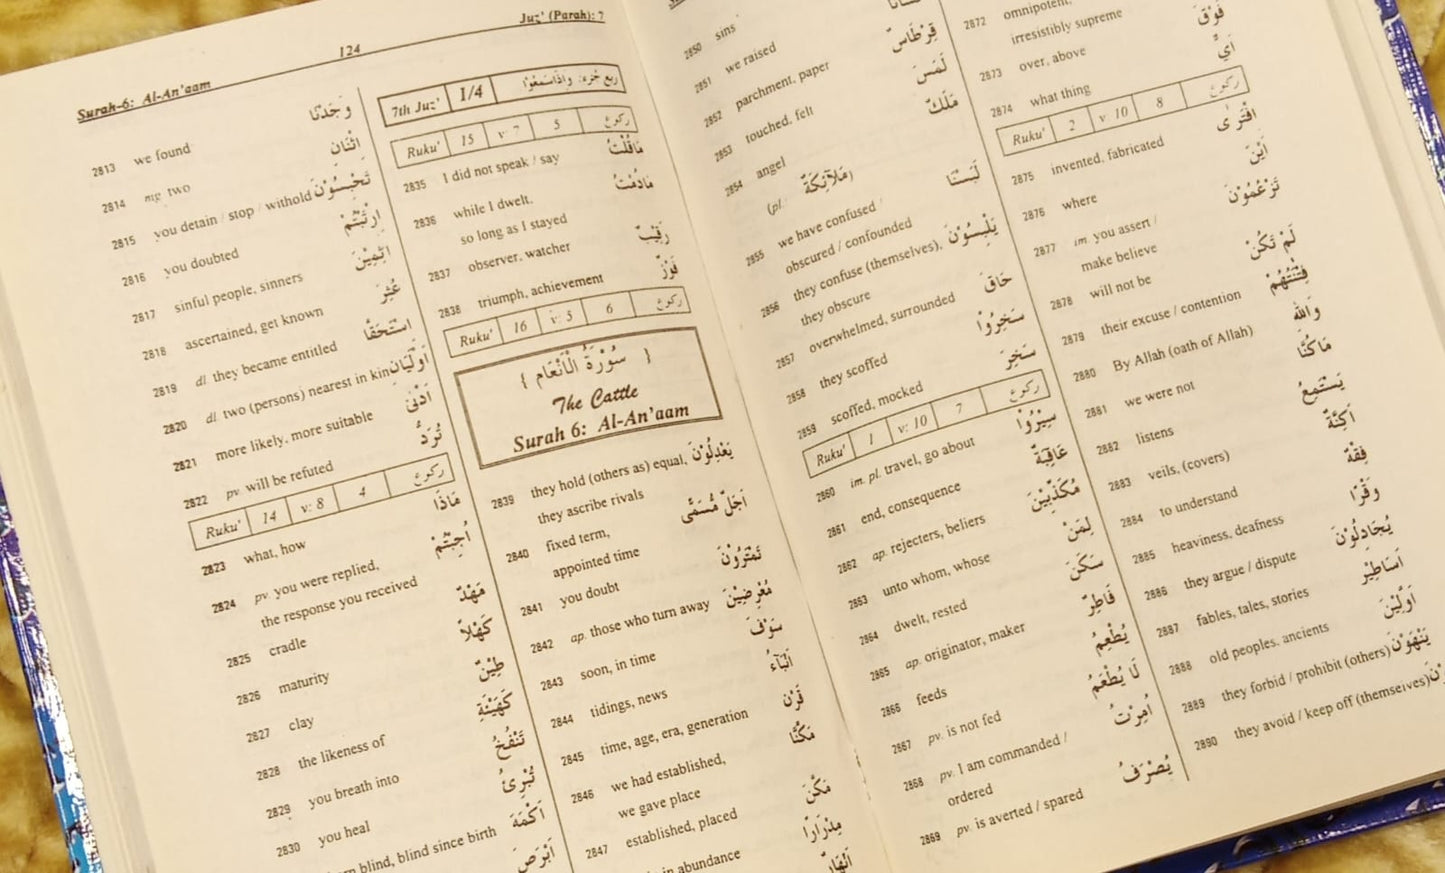 124
Juz' (Parah): 7
Surah-6: Al-An'aam
2813 we found وَجَدْنَا
2814 mg. two اثْنَانِ
2815 you detain / stop / withold تَحْبِسُوْنَ
2816 you doubted ارْتَبْتُمْ
2817 sinful people, sinners اٰثِمِيْنَ
2818 ascertained, get known عُثِرَ
2819 dl. they became entitled اسْتَحَقَّا
2820 dl. two (persons) nearest in kin اَوْلَيَانِ
2821 more likely, more suitable اَدْنٰى
2822 pv. will be refuted تُرَدَّ
Ruku' 14 v: 8 4 ركوع
2823 what, how مَاذَا
2824 pv. you were replied, اُجِبْتُمْ
the response you received
2825 cradle مَهْدٌ
2826 maturity كَهْلاً
2827 clay طِيْنٌ
2828 the likeness of كَهَيْئَةِ
2829 you breath into تَنْفُخُ
2830 you heal تُبْرِئُ
blind, blind since birth اَكْمَهَ
اَبْرَصَ
7th Juz' 1/4 ربع جُزء: وَاِذَاسَمِعُوْا
Ruku' 15 v: 7 5 ركوع
2835 I did not speak / say مَاقُلْتُ
2836 while I dwelt, مَادُمْتُ
so long as I stayed
2837 observer, watcher رَقِيْبٌ
2838 triumph, achievement فَوْزٌ
Ruku' 16 v: 5 6 ركوع
{ سُوْرَةُ الْاَنْعَام }
The Cattle
Surah 6: Al-An'aam
2839 they hold (others as) equal, يَعْدِلُوْنَ
they ascribe rivals
2840 fixed term, اَجَلٌ مُّسَمًّى
appointed time
2841 you doubt تَمْتَرُوْنَ
2842 ap. those who turn away مُعْرِضِيْنَ
2843 soon, in time سَوْفَ
2844 tidings, news اَنْبَآءُ
2845 time, age, era, generation قَرْنٍ
2846 we had established, مَكَّنَّا
we gave place
2847 established, placed مَكَّنَ
in abundance مِدْرَارًا
اَنْهَارٌ
2850 sins
2851 we raised
2852 parchment, paper قِرْطَاسٌ
2853 touched, felt لَمَسَ
2854 angel مَلَكٌ
(pl. مَلَآئِكَةٌ)
2855 we have confused / لَبَسْنَا
obscured / confounded
2856 they confuse (themselves), يَلْبِسُوْنَ
they obscure
2857 overwhelmed, surrounded حَاقَ
2858 they scoffed سَخِرُوْا
2859 scoffed, mocked سَخِرَ
Ruku' 1 v: 10 7 ركوع
2860 im. pl. travel, go about سِيْرُوْا
2861 end, consequence عَاقِبَةٌ
2862 ap. rejecters, beliers مُكَذِّبِيْنَ
2863 unto whom, whose لِمَنْ
2864 dwelt, rested سَكَنَ
2865 ap. originator, maker فَاطِرٌ
2866 feeds يُطْعِمُ
2867 pv. is not fed لَا يُطْعَمُ
2868 pv. I am commanded / اُمِرْتُ
ordered
2869 pv. is averted / spared يُصْرَفُ
2872 omnipotent,
irresistibly supreme
2873 over, above فَوْقَ
2874 what thing اَىُّ
Ruku' 2 v: 10 8 ركوع
2875 invented, fabricated افْتَرٰى
2876 where اَيْنَ
2877 im. you assert / تَزْعُمُوْنَ
make believe
2878 will not be لَمْ تَكُنْ
2879 their excuse / contention فِتْنَتُهُمْ
2880 By Allah (oath of Allah) وَاللهِ
2881 we were not مَاكُنَّا
2882 listens يَسْتَمِعُ
2883 veils, (covers) اَكِنَّةً
2884 to understand فِقْهٌ
2885 heaviness, deafness وَقْرًا
2886 they argue / dispute يُجَادِلُوْنَ
2887 fables, tales, stories اَسَاطِيْر
2888 old peoples, ancients اَوَّلِيْنَ
2889 they forbid / prohibit (others) يَنْهَوْنَ
2890 they avoid / keep off (themselves)